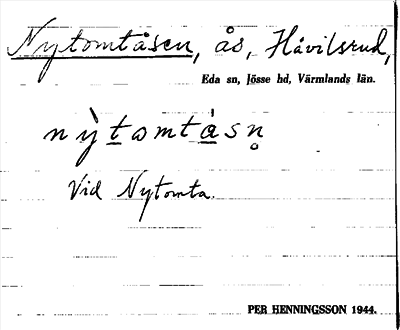 Nytomtåsen, ås, Håvilsrud,
Eda sn, Jösse hd, Värmlands län.
nỳtomtásn̥
Vid Nytomta.
PER HENNINGSSON 1944.